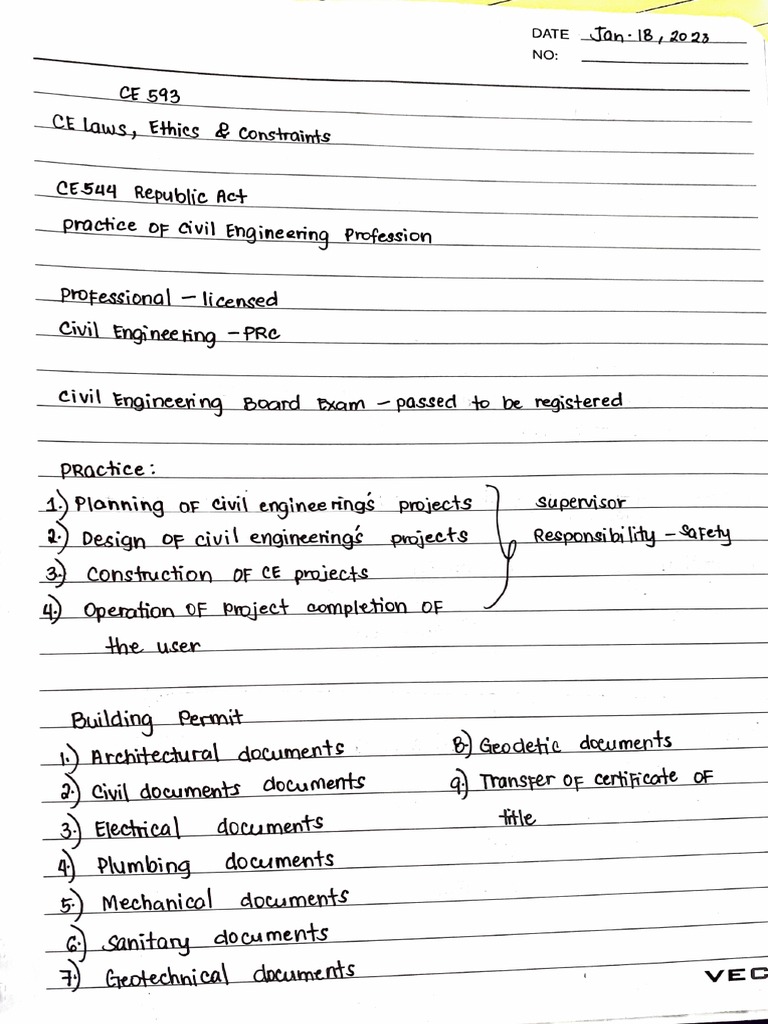 DATE Jan. 18, 2023
NO:
CE 593
CE Laws, Ethics & Constraints
CE544 Republic Act
Practice of Civil Engineering Profession
Professional – licensed
Civil Engineering – PRC
Civil Engineering Board Exam – passed to be registered
Practice:
1.) Planning of civil engineering's projects
2.) Design of civil engineering's projects
3.) Construction of CE projects
4.) Operation of project completion of
the user
supervisor
Responsibility – Safety
Building Permit
1.) Architectural documents
2.) Civil documents documents
3.) Electrical documents
4.) Plumbing documents
5.) Mechanical documents
6.) Sanitary documents
7.) Geotechnical documents
8.) Geodetic documents
9.) Transfer of certificate of
title
VEC